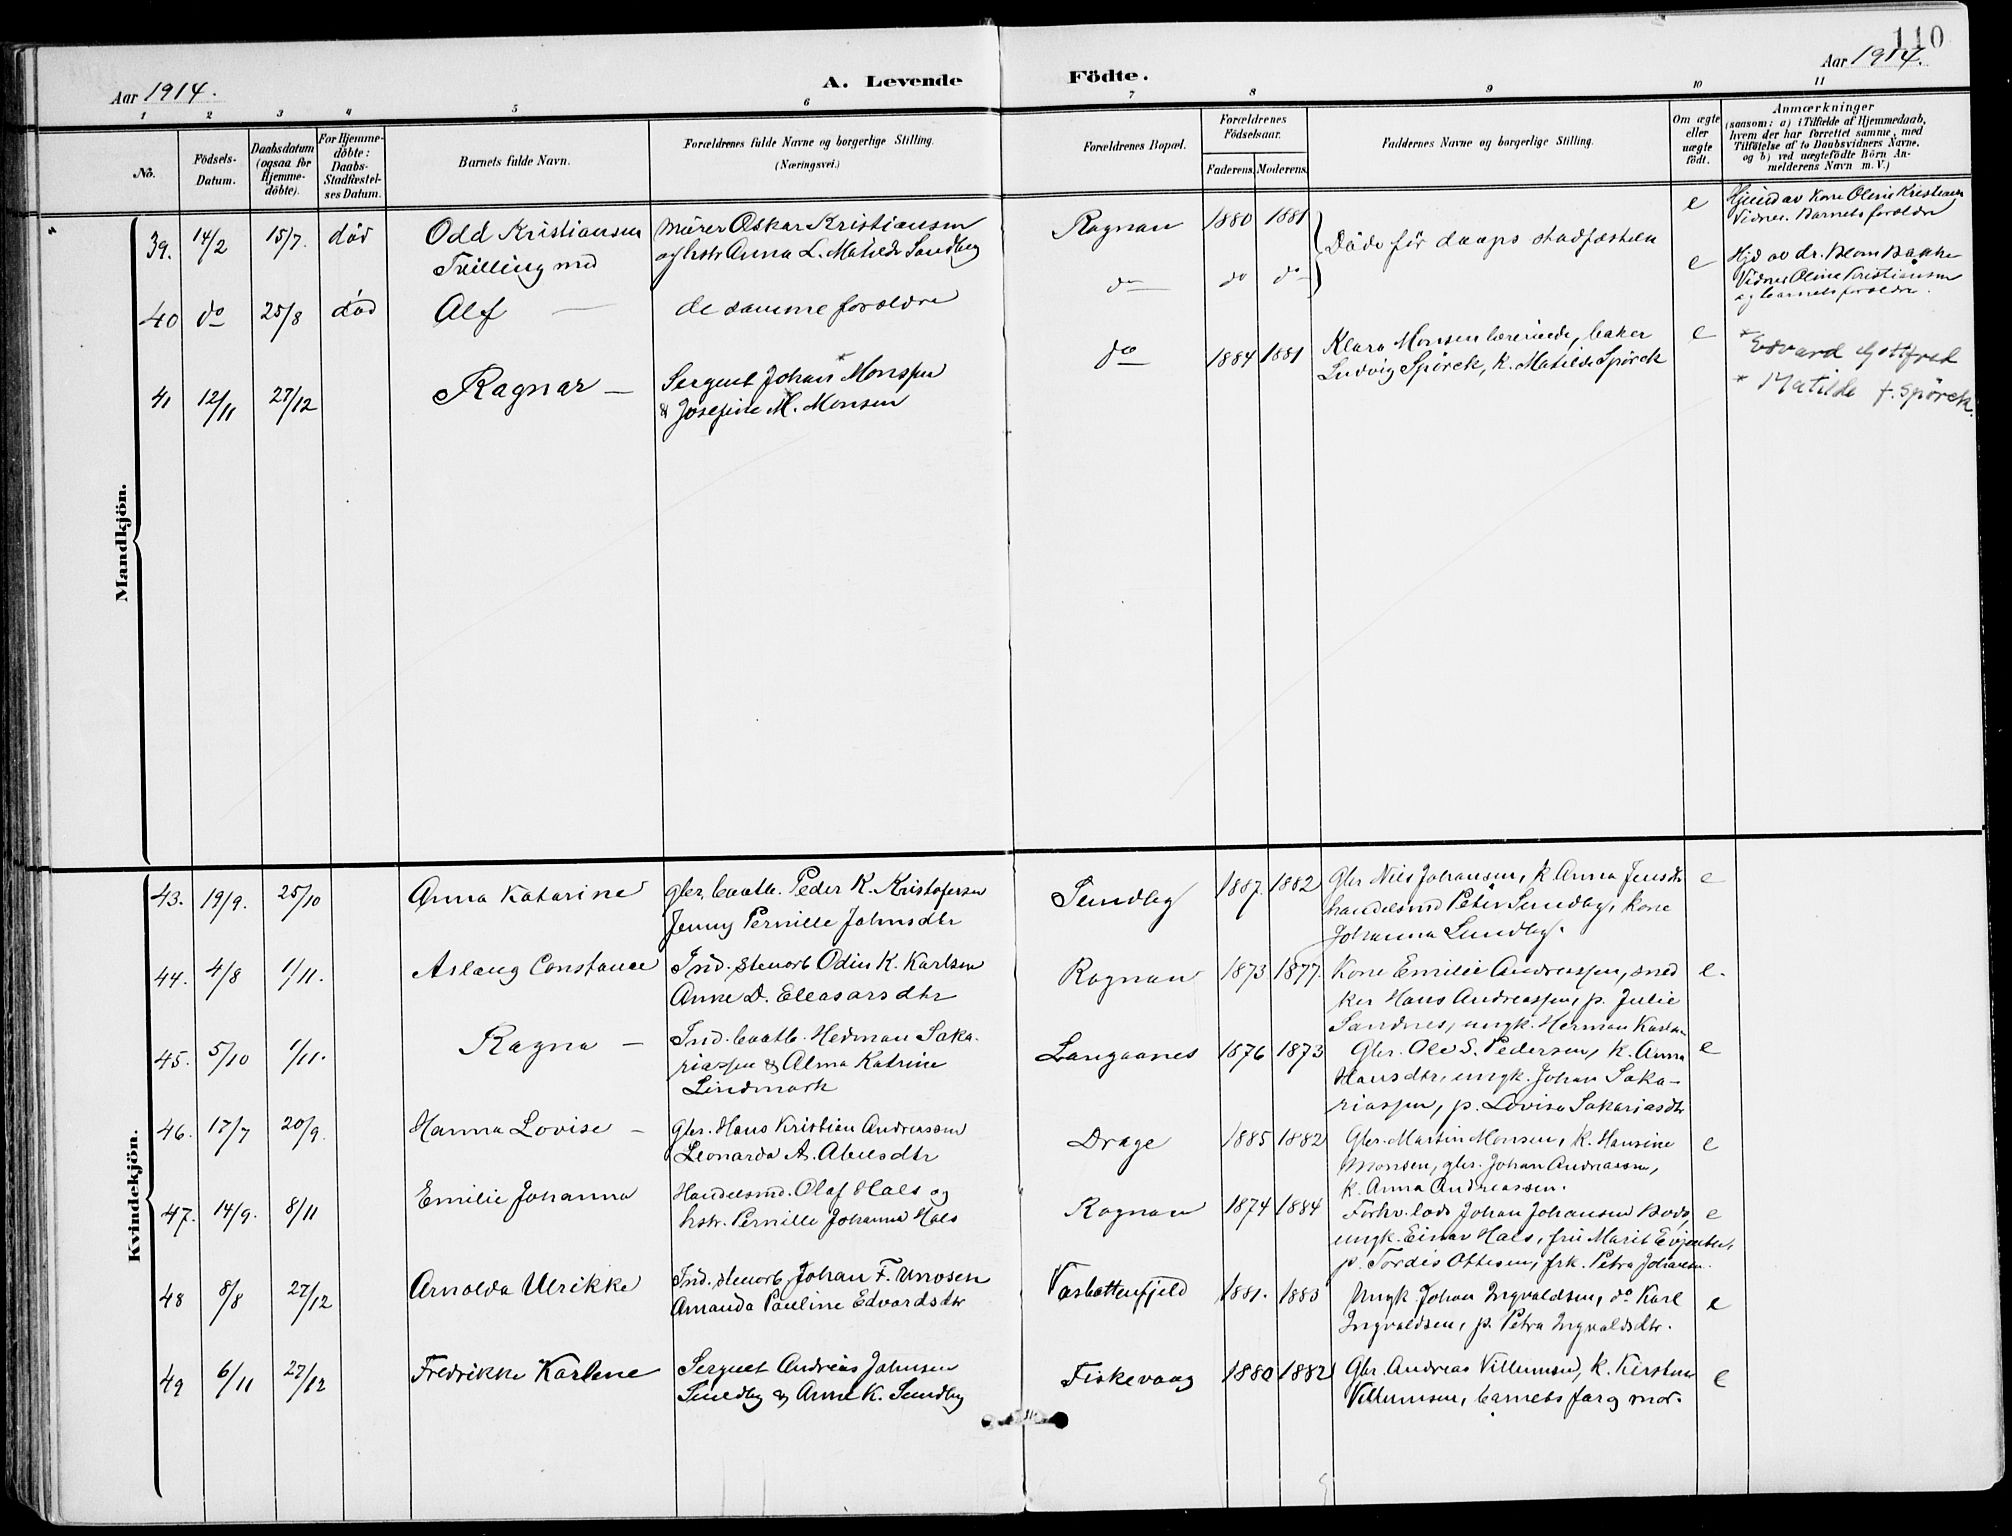 110
Aar 1914.
A. Levende Födte.
Aar 1914.
1 2 3 4 5 6 7 8 9 10 11
No.
Födsels-Datum.
Daabsdatum (ogsaa for Hjemme-döbte).
For Hjemme-döbte: Daabs-Stadfæstelses Datum.
Barnets fulde Navn.
Forældrenes fulde Navne og borgerlige Stilling.
(Næringsvei.)
Forældrenes Bopæl.
Forældrenes Födselsaar.
Faderens. Moderens.
Faddernes Navne og borgerlige Stilling.
Om ægte eller uægte födt.
Anmærkninger
(saasom: a) i Tilfælde af Hjemmedaab,
hvem der har forrettet samme, med
Tilföielse af to Daabsvidners Navne,
og b) ved uægtefödte Börn An-
melderens Navn m. V.)
Mandkjön.
39. 14/2 15/7. död Odd Kristiansen Murer Oskar Kristiansen Rognan 1880 1881 Døde før daaps stadfæstelse e Hjemd av Kone Oline Kristiansen
Tvilling med og hstr Anna L. Matilde Sundby Vidner. Barnets forældre
40 do 25/8 död Alf — de samme forældre do do do e Hjd av dr. Blom Bakke
Vidner Oline Kristiansen
og barnets forældre.
41 12/11 27/12 Ragnar — Sergent Johan* Monssen do 1884 1881 Klara Monsen lærerinde, baker e * Edvard Gottfred
& Josefine M.* Monsen Ludvig Spörck, k. Matilde Spörck * Matilde f. Spörck.
Kvindekjön.
43. 19/9. 25/10 Anna Katarine gbr, baatb. Peder K. Kristofersen Sundby 1887. 1882 Gbr Nils Johansen, k Anna Jensdtr e
Jenny Pernille Johnsdtr handelsmd Peter Sundby, kone
Johanna Sundby.
44. 4/8 1/11. Aslaug Constance Ind. stenarb Odin K. Karlsen Rognan 1873 1877. Kone Emilie Andreassen, sned e.
Anne D. Eleasarsdtr ker Hans Andreassen, p. Julie
Sandnes, ungk. Herman Karlsen
45. 5/10 1/11. Ragna — Ind. baatb. Hedman Saka- Langaanes 1876 1873 Gbr. Ole S. Pedersen, k. Anna e
riassen & Alma Katrine Hansdtr, ungk. Johan Saka-
Lindmark riassen, p. Lovise Sakariasdtr
46. 17/7 20/9. Hanna Lovise — gbr. Hans Kristian Andreassen Drage 1885 1882 Gbr. Martin Monsen, k. Hansine e
Leonarda A. Abelsdtr Monsen, gbr. Johan Andreassen,
k. Anna Andreassen.
47. 14/9. 8/11 Emilie Johanna Handelsmd. Olaf Hals og Rognan 1874 1884 Forhv. lods Johan Johansen Bodø, e
hstr. Pernille Johanna Hals ungk. Einar Hals, fru Marit Evjenth,
p. Tordis Ottesen, frk. Petra Johansen.
48 8/8 27/12 Arnolda Ulrikke Ind. stenarb Johan F. Unosen Vasbottenfjeld 1881. 1883 Ungk. Johan Ingvaldsen, do Karl e
Amanda Pauline Edvardsdtr Ingvaldsen, p. Petra Ingvaldsdtr.
49 6/11 27/12 Fredrikke Karlene Sergnet Andreas Johnsen Fiskevaag 1880 1882 Gbr. Andreas Villumsen, k. Kirstine e
Sundby & Anne K. Sundby Villumsen, barnets far og mor.